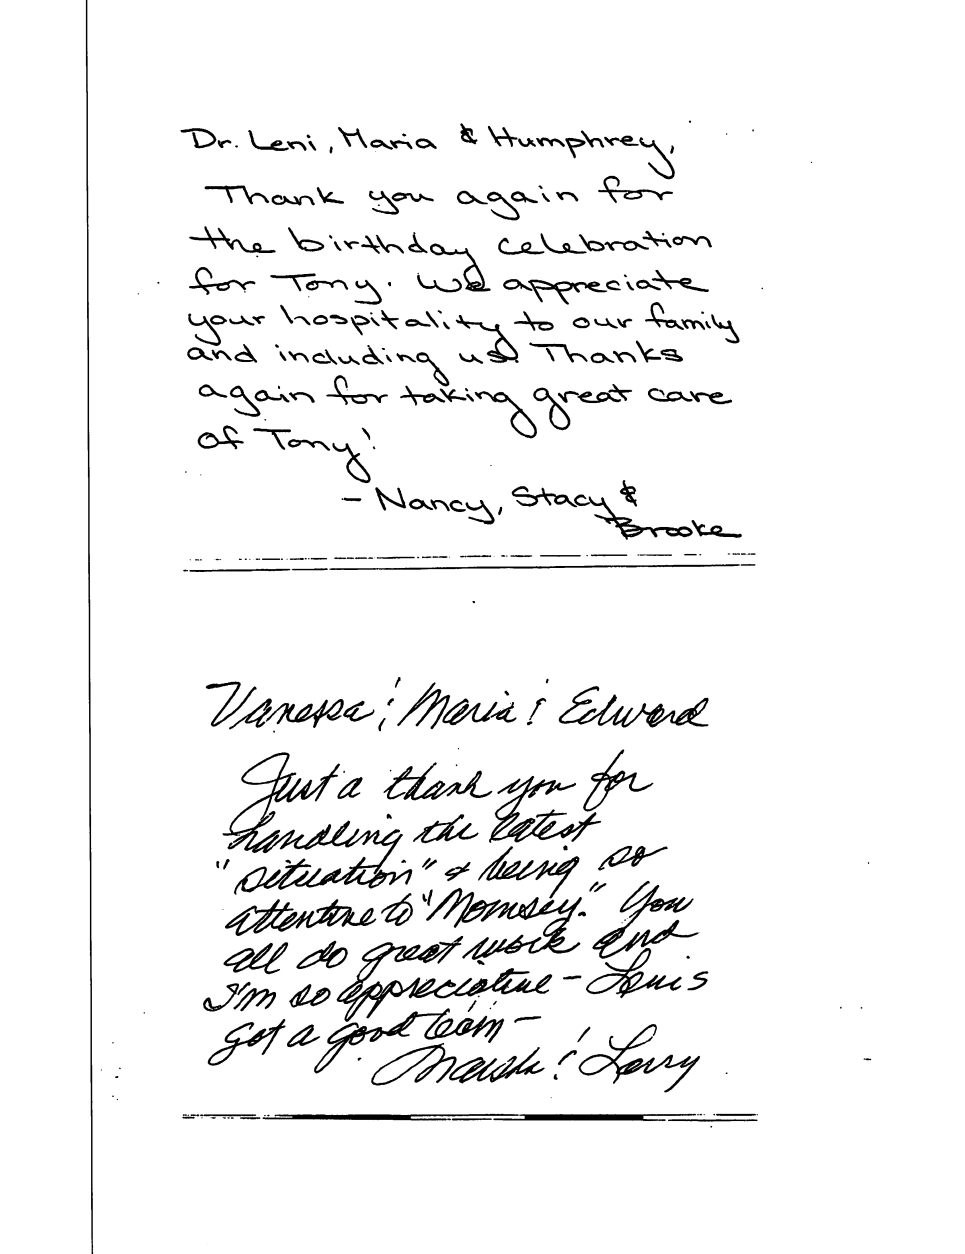 Dr. Leni, Maria & Humphrey,
Thank you again for
the birthday celebration
for Tony. We appreciate
your hospitality to our family
and including us! Thanks
again for taking great care
of Tony!
- Nancy, Stacy &
Brooke
Vanessa & Maria & Edward
Just a thank you for
handling the latest
"situation" & being so
attentive to "Momsey." You
all do great work and
I'm so appreciative - Louis
got a good team -
Marsha & Larry